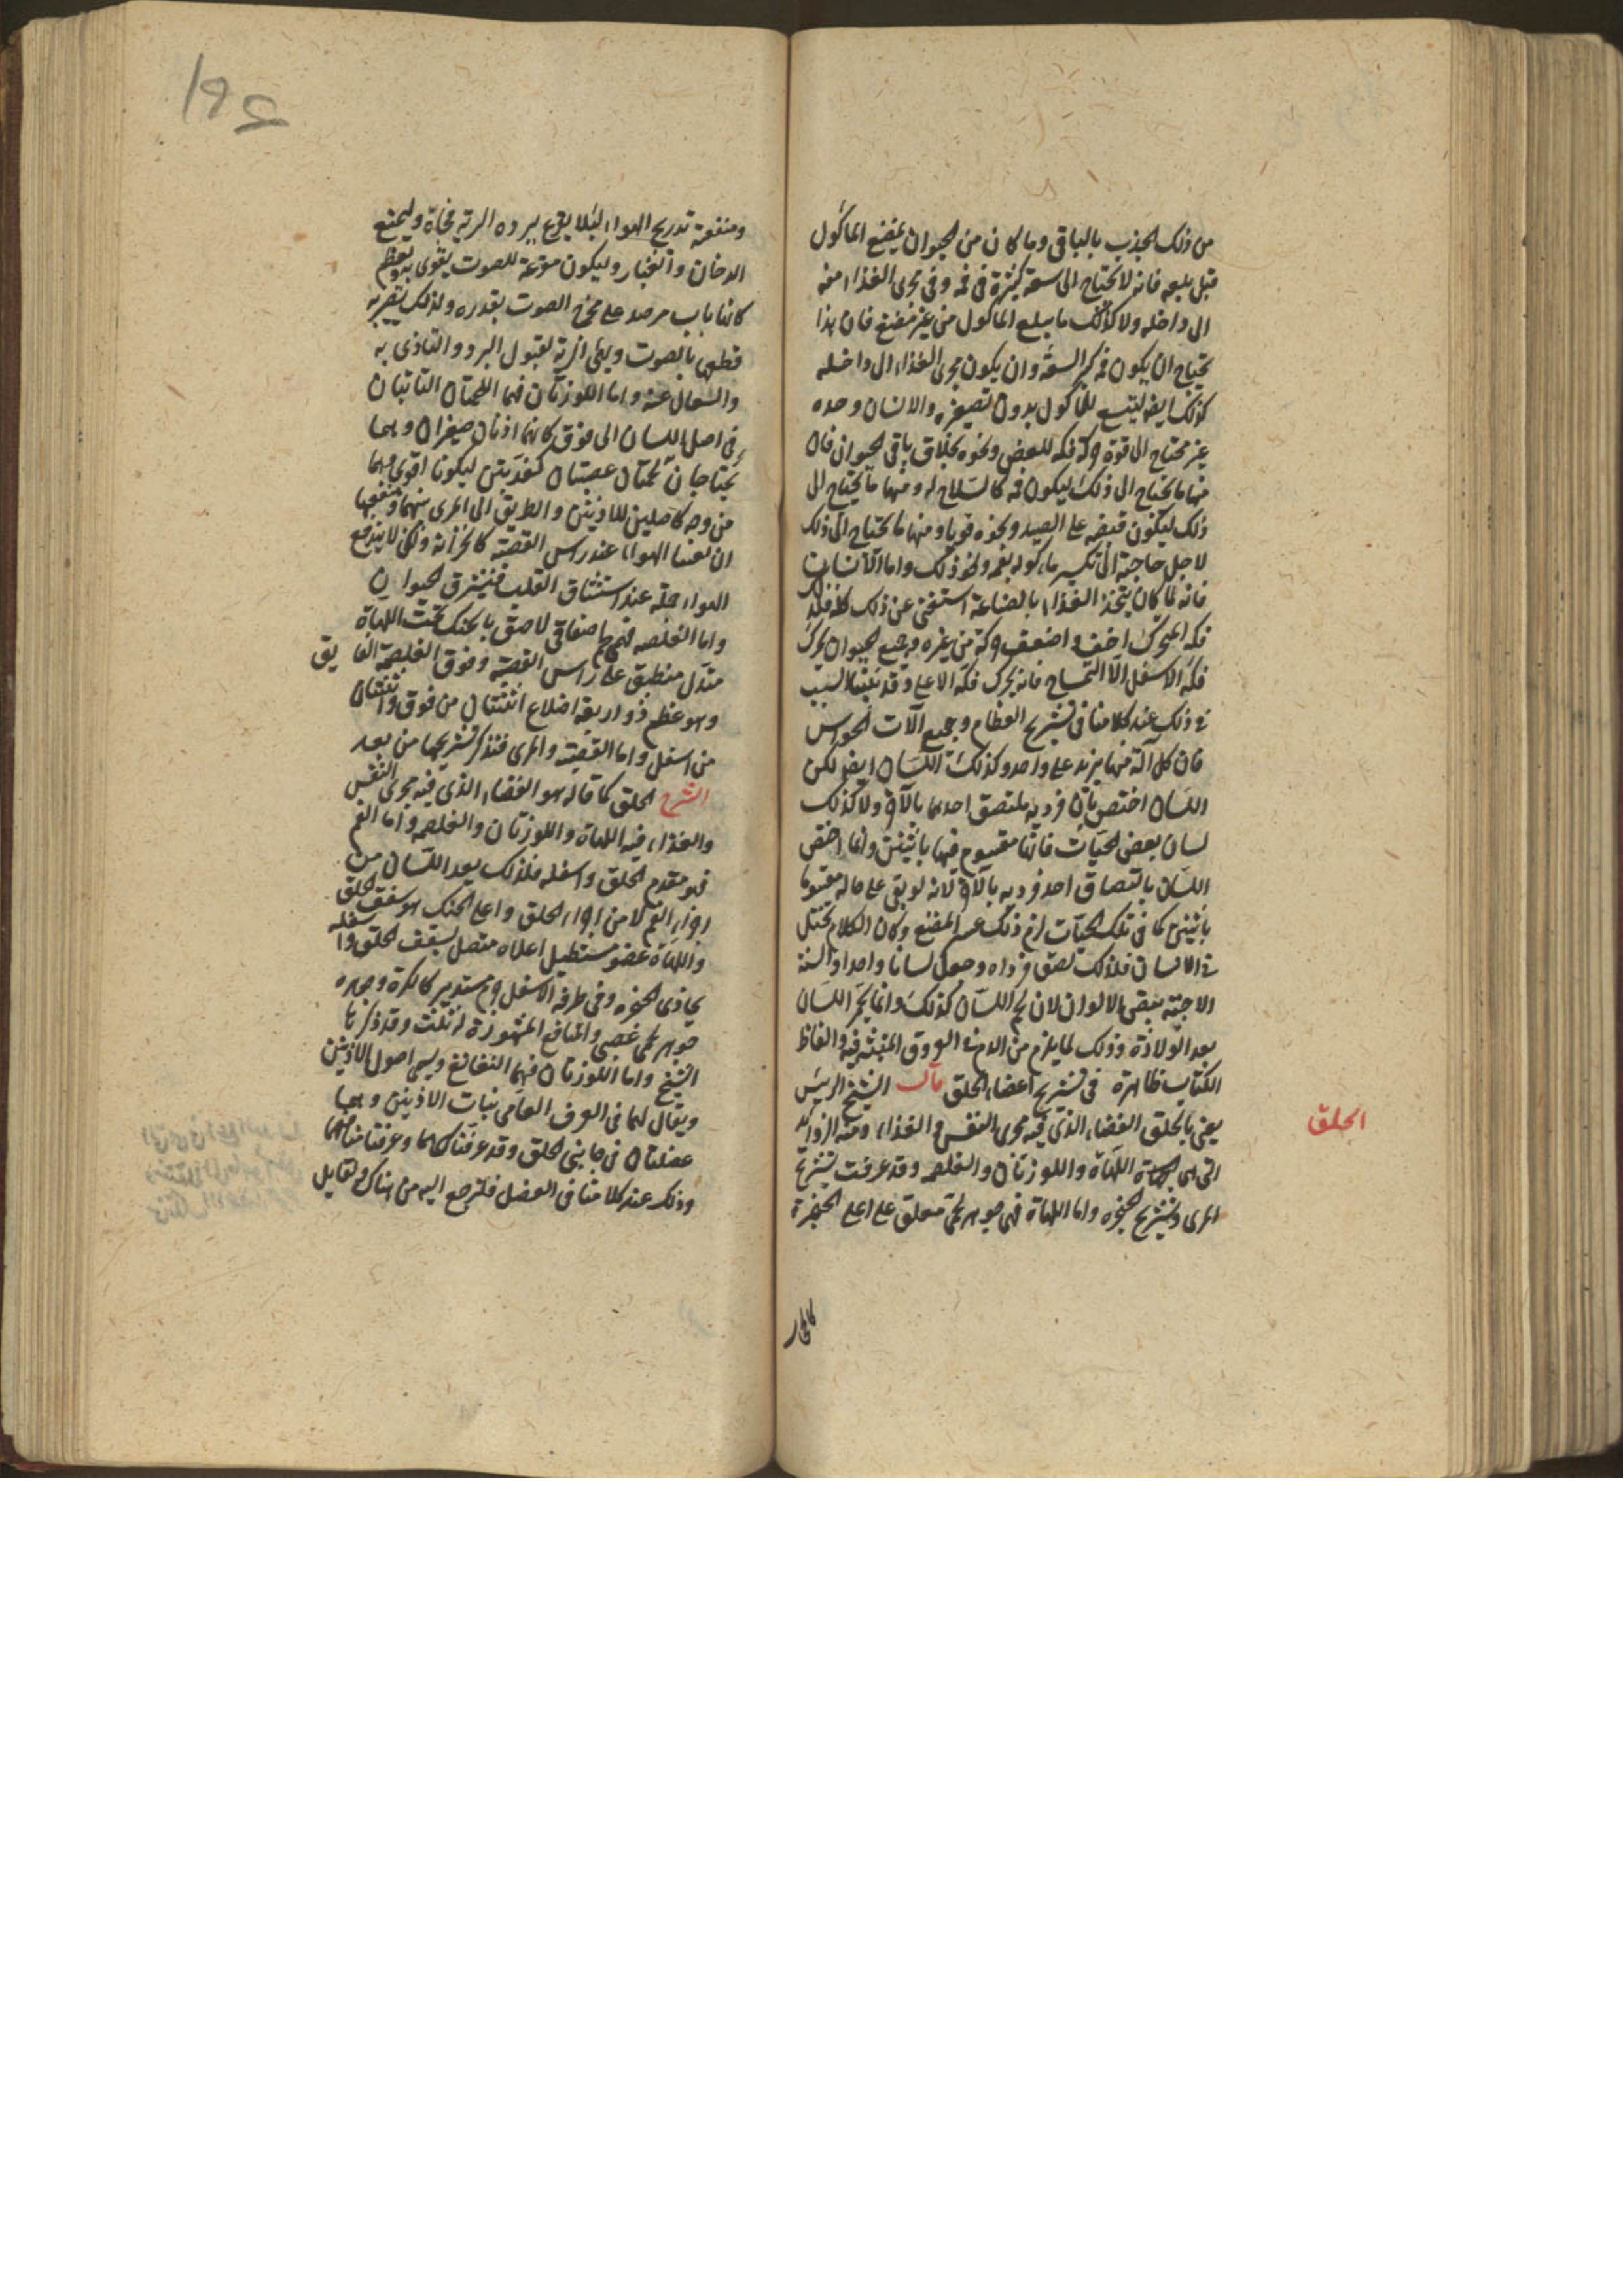 من ذلك الجذب بالباقى وما كان من الحيوان يمضغ المأكول
قبل بلعه فانه لا يحتاج الى سعة كثيرة فى فمه وفى مجرى الغذاء منه
الى داخله ولا كذلك ما يبلع المأكول من غير مضغ فان هذا
يحتاج ان يكون فمه كبير السعة وان يكون مجرى الغذاء الى داخله
كذلك ايضا ليتسع للمأكول بدون تصغيره والانسان وحده
غير محتاج الى قوة حركة فكه للعض ونحوه بخلاف باقى الحيوان فان
منها ما يحتاج الى ذلك ليكون فمه كالسلاح له ومنها ما يحتاج الى
ذلك ليكون قبضه على الصيد ونحوه قويا ومنها ما يحتاج الى ذلك
لاجل حاجته الى تكسير مأكوله بفمه ونحو ذلك واما الانسان
فانه لما كان يتخذ الغذاء بالصناعة استغنى عن ذلك كله فلذلك
فكه المتحرك اخف واضعف حركة من غيره وجميع الحيوان يحرك
فكه الاسفل الا التمساح فانه يحرك فكه الاعلى وقد بينا السبب
فى ذلك عند كلامنا فى تشريح العظام وجميع آلات الحواس
فان كل آلة منها يزيد على واحد وكذلك اللسان ايضا لكن
اللسان اختص بان فرديه ملتصق احدهما بالآخر ولا كذلك
لسان بعض الحيات فانها مقسوم فيها باثنين وانما اختص
اللسان بالتصاق احد فرديه بالآخر لانه لو بقى على حاله مقسوما
باثنين كما فى تلك الحيات لزم ذلك عسر المضغ وكان الكلام يختل
فى الانسان فلذلك لصق فرداه وجعل لسانا واحدا والسنة
الاجنة بيض الالوان لان لحم اللسان كذلك وانما يحمر اللسان
بعد الولادة وذلك لما يلزم من الدم فى العروق المنبثة فيه والفاظ
الكتاب ظاهرة فى تشريح اعضاء الحلق قال الشيخ الرئيس
يعنى بالحلق الفضاء الذى فيه مجرى النفس والغذاء ومنه الزوائد
التى هى اللهاة واللوزتان والغلصمة وقد عرفت تشريح
المرى وتشريح الحنجرة واما اللهاة فهى جوهر لحمى معلق على اعلى الحنجرة
كالحجاب
الحلق
ومنفعته تدريج الهواء لئلا يقرع ببرده الرية فجأة وليمنع
الدخان والغبار وليكون مقرعة للصوت يقوى بها ويعظم
كانها باب مرصد على مخرج الصوت بقدره ولذلك يضر
قطعها بالصوت ويهئ الرية لقبول البرد والتأذى به
والسعال عنه واما اللوزتان فهما اللحمتان الناتيتان
فى اصل اللسان الى فوق كانهما اذنان صغيران وهما
لحمتان عصبتان كغدتين ليكونا اقوى وهما
من وجه كاصلين للاذنين والطريق الى المرى بينهما ومنفعتهما
ان يعبئا الهواء عند راس القصبة كالخزانة ولكى لا يندفع
الهواء جملة عند استنشاق القلب فيشرق الحيوان
واما الغلصمة فهى لحم صفاقى لاصق بالحنك تحت اللهاة
متدل منطبق على راس القصبة وفوق الغلصمة الفايق
وهو عظم ذو اربعة اضلاع اثنتان من فوق واثنتان
من اسفل واما القصبة والمرى فنذكر تشريحهما من بعد
الشرح الحلق كما قاله هو الفضاء الذى فيه مجرى النفس
والغذاء فيه اللهاة واللوزتان والغلصمة واما الفم
فهو مقدم الحلق واسفله فلذلك يعد اللسان من
اجزاء الفم لا من اجزاء الحلق واعلى الحنك هو سقف الحلق
واللهاة عضو مستطيل اعلاه متصل بسقف الحلق واسفله
يحاذى الحنجرة وفى طرفه الاسفل مستدير كالكرة وجوهره
جوهر لحمى عصبى والمنافع المشهورة له ثلث وقد ذكرها
الشيخ واما اللوزتان فهما النغانغ ويسمى اصول الاذنين
ويقال لهما فى العرف العامى بنات الاذنين وهما
عضلتان فى جانبى الحلق وقد عرفناكهما وعرفنا منافعهما
وذلك عند كلامنا فى العضل فلترجع اليه من هناك ولقايل